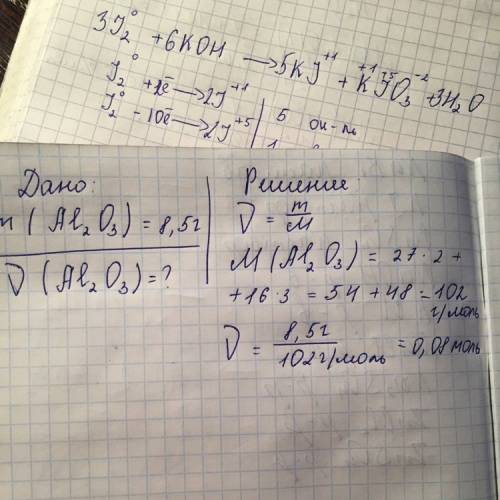 3J₂⁰ + 6KOH → 5KJ⁺¹ + K⁺¹J⁺⁵O₃⁻² + 3H₂O
J₂⁰ + 2ē → 2J⁺¹ | 5 ок-ль
J₂⁰ - 10ē → 2J⁺⁵ | 1
Дано:
m (Al₂O₃) = 8,5г
ν (Al₂O₃) = ?
Решение:
ν = m/M
M (Al₂O₃) = 27·2 +
+ 16·3 = 54 + 48 = 102
г/моль
ν = 8,5г / 102г/моль = 0,08моль